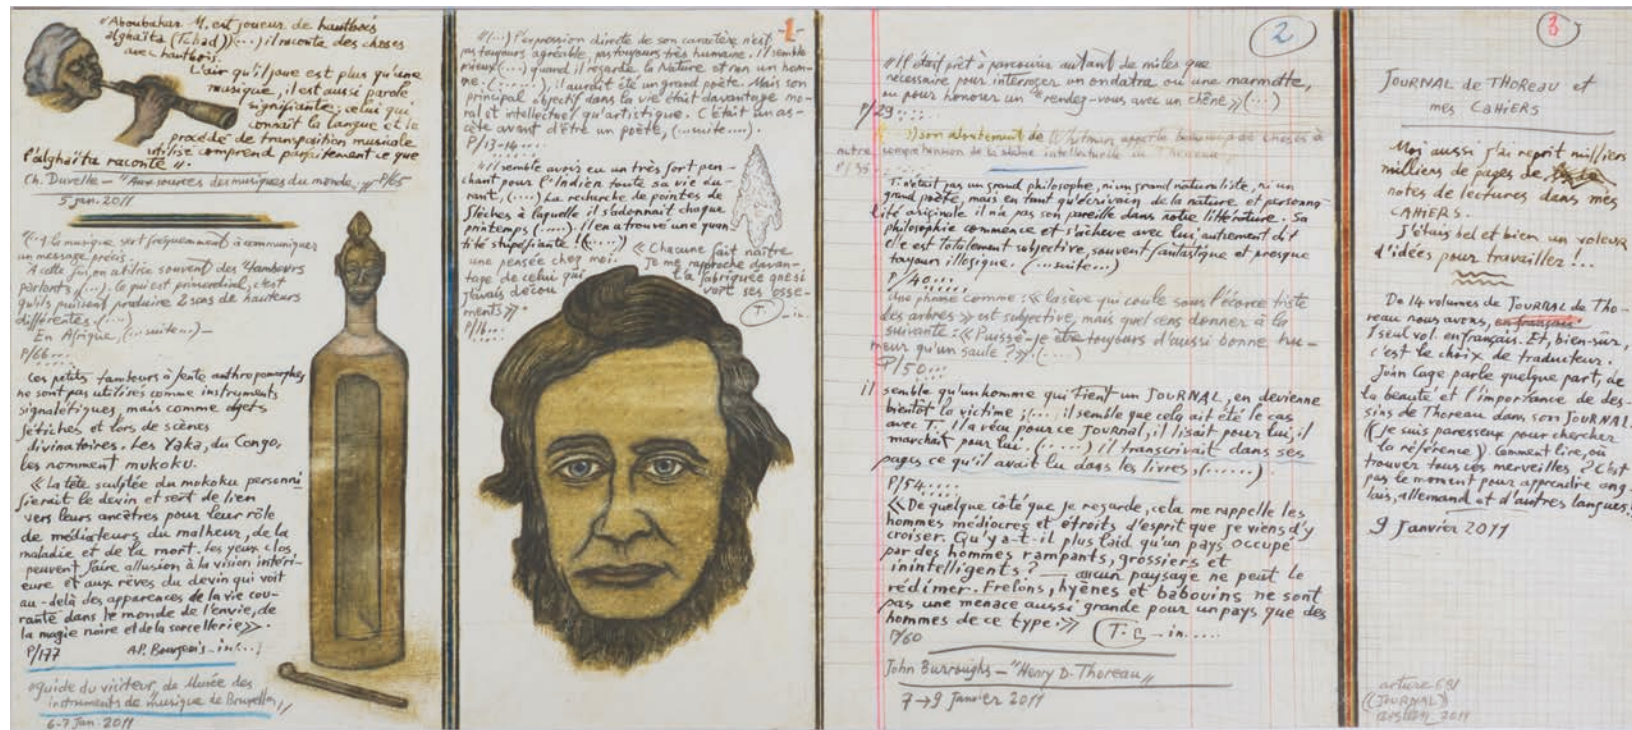 "Aboubakar M. est joueur de hautbois
alghaïta (Tchad) (...) il raconte des choses
avec hautbois.
L'air qu'il joue est plus qu'une
musique, il est aussi parole
signifiante; celui qui
connaît la langue et le
procédé de transposition musicale
utilisé comprend parfaitement ce que
l'alghaïta raconte".
Ch. Duvelle - "Aux sources des musiques du monde" P/65
5 jan. 2011
"(...) la musique sert fréquemment à communiquer
un message précis.
A cette fin, on utilise souvent des "tambours
parlants, (...). Ce qui est primordial, c'est
qu'ils puissent produire 2 sons de hauteurs
différentes. (....)
En Afrique, (...suite...) -
P/66...
Ces petits tambours à fente anthropomorphes
ne sont pas utilisés comme instruments
signalétiques, mais comme objets
fétiches et lors de scènes
divinatoires. Les Yaka, du Congo,
les nomment mukoku.
«La tête sculptée du mokoku personni
fierait le devin et sert de lien
vers leurs ancêtres pour leur rôle
de médiateurs du malheur, de la
maladie et de la mort. Les yeux clos
peuvent faire allusion à la vision intéri-
eure et aux rêves du devin qui voit
au-delà des apparences de la vie cou-
rante dans le monde de l'envie, de
la magie noire et de la sorcellerie».
P/177 A.P. Bourgeois - in (...)
"Guide du visiteur, de Musée des
instruments de musique de Bruxelles"
6-7 Jan. 2011
1
"(...) l'expression directe de son caractère n'est
pas toujours agréable, pas toujours très humaine. Il semble
mieux (...) quand il regarde la Nature et non un hom-
me. (.....), il aurait été un grand poète. Mais son
principal objectif dans la vie était davantage mo-
ral et intellectuel qu'artistique. C'était un as-
cète avant d'être un poète, (...suite....).
P/13-14....
"Il semble avoir eu un très fort pen-
chant pour l'Indien toute sa vie du-
rant, (....) La recherche de pointes de
flèches à laquelle il s'adonnait chaque
printemps (.....). Il en a trouvé une quan
tité stupéfiante! (....)) «Chacune fait naître
une pensée chez moi. Je me rapproche davan-
tage de celui qui l'a fabriquée que si
j'avais décou vert ses osse-
ments».
P/16... (T.) - in.
2
"Il était prêt à parcourir autant de miles que
nécessaire pour interroger un ondatra ou une marmotte,
ou pour honorer un "rendez-vous avec un chêne» (...)
P/29.....
son de Whitman apporte beaucoup de choses à
notre compréhension de la intellectuelle de Thoreau
P/35
T. n'était pas un grand philosophe, ni un grand naturaliste, ni un
grand poète, mais en tant qu'écrivain de la nature et personna
lité originale il n'a pas son pareille dans notre littérature. Sa
philosophie commence et s'achève avec lui, autrement dit
elle est totalement subjective, souvent fantastique et presque
toujours illogique. (...suite...)
P/40....
Une phrase comme: «La sève qui coule sous l'écorce triste
des arbres» est subjective, mais quel sens donner à la
suivante: «Puissè-je être toujours d'aussi bonne hu-
meur qu'un saule?». (....)
P/50...
il semble qu'un homme qui tient un JOURNAL, en devienne
bientôt la victime; (... il semble que cela ait été le cas
avec T. Il a vécu pour ce JOURNAL, il lisait pour lui, il
marchait pour lui. (......) il transcrivait dans ses
pages ce qu'il avait lu dans les livres, (......).
P/54.....
«De quelque côté que je regarde, cela me rappelle les
hommes médiocres et étroits d'esprit que je viens d'y
croiser. Qu'y a-t-il plus laid qu'un pays occupé
par des hommes rampants, grossiers et
inintelligents? — aucun paysage ne peut le
rédimer. Frelons, hyènes et babouins ne sont
pas une menace aussi grande pour un pays que des
hommes de ce type.»
P/60 T. - in.....
John Burroughs - "Henry D. Thoreau"
7→9 Janvier 2011
3
JOURNAL de THOREAU et
mes CAHIERS
Moi aussi j'ai reprit milliers
milliers de pages de
notes de lectures dans mes
CAHIERS.
J'étais bel et bien un voleur
d'idées pour travailler!...
De 14 volumes de JOURNAL de Tho-
reau nous avons, en français.
1 seul vol. en français. Et, bien-sûr,
c'est le choix de traducteur.
John Cage parle quelque part, de
la beauté et l'importance de des-
sins de Thoreau dans son JOURNAL.
((Je suis paresseux pour chercher
la référence)). Comment lire, où
trouver tous ces merveilles? C'est
pas le moment pour apprendre ang-
lais, allemand et d'autres langues!
9 Janvier 2011
((JOURNAL))
2011